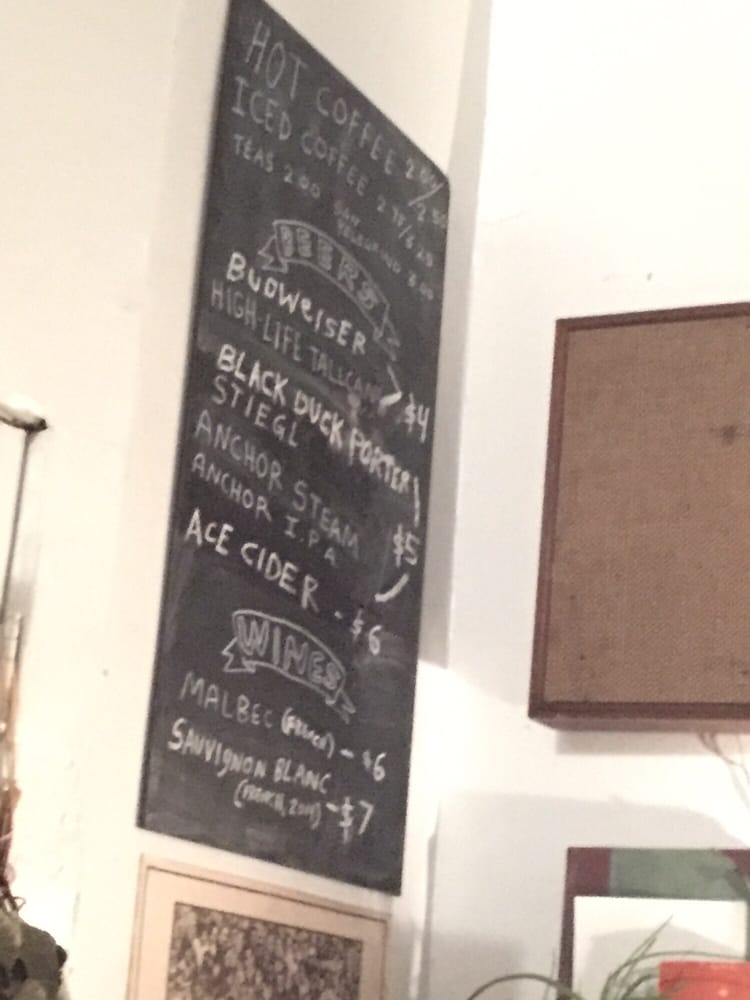 HOT COFFEE 2.00/2.50
ICED COFFEE
TEAS 2.00 SAN
PELLEGRINO 2.00
BEERS
BUDWEISER
HIGH-LIFE TALLCAN
$4
BLACK DUCK PORTER
STIEGL
ANCHOR STEAM
ANCHOR I.P.A
$5
ACE CIDER - $6
WINES
MALBEC (FRENCH) - $6
SAUVIGNON BLANC
(FRENCH, - $7